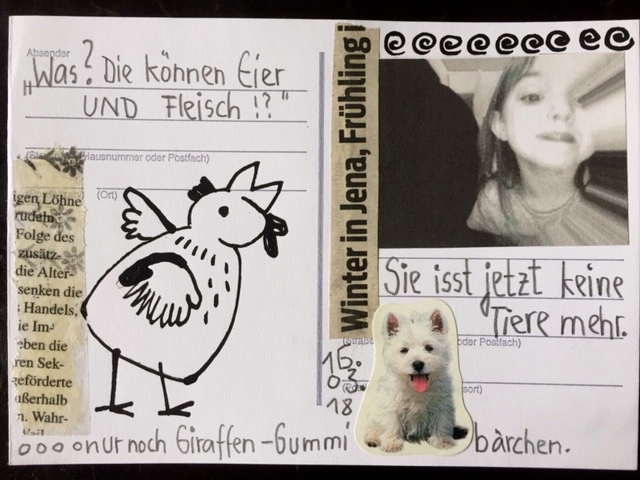 Absender
„Was? Die können Eier
UND Fleisch!?"
Hausnummer oder Postfach)
(Ort)
igen Löhne
rudeln
Folge des
zusätz-
die Alter-
senken die
Handels,
ie Im-
eben die
ren Sek-
geförderte
ußerhalb
n. Wahr-
Winter in Jena, Frühling i
Sie isst jetzt keine
Tiere mehr.
(Straße
oder Postfach)
16.
03.
18
sort)
nur noch Giraffen-Gummi bärchen.